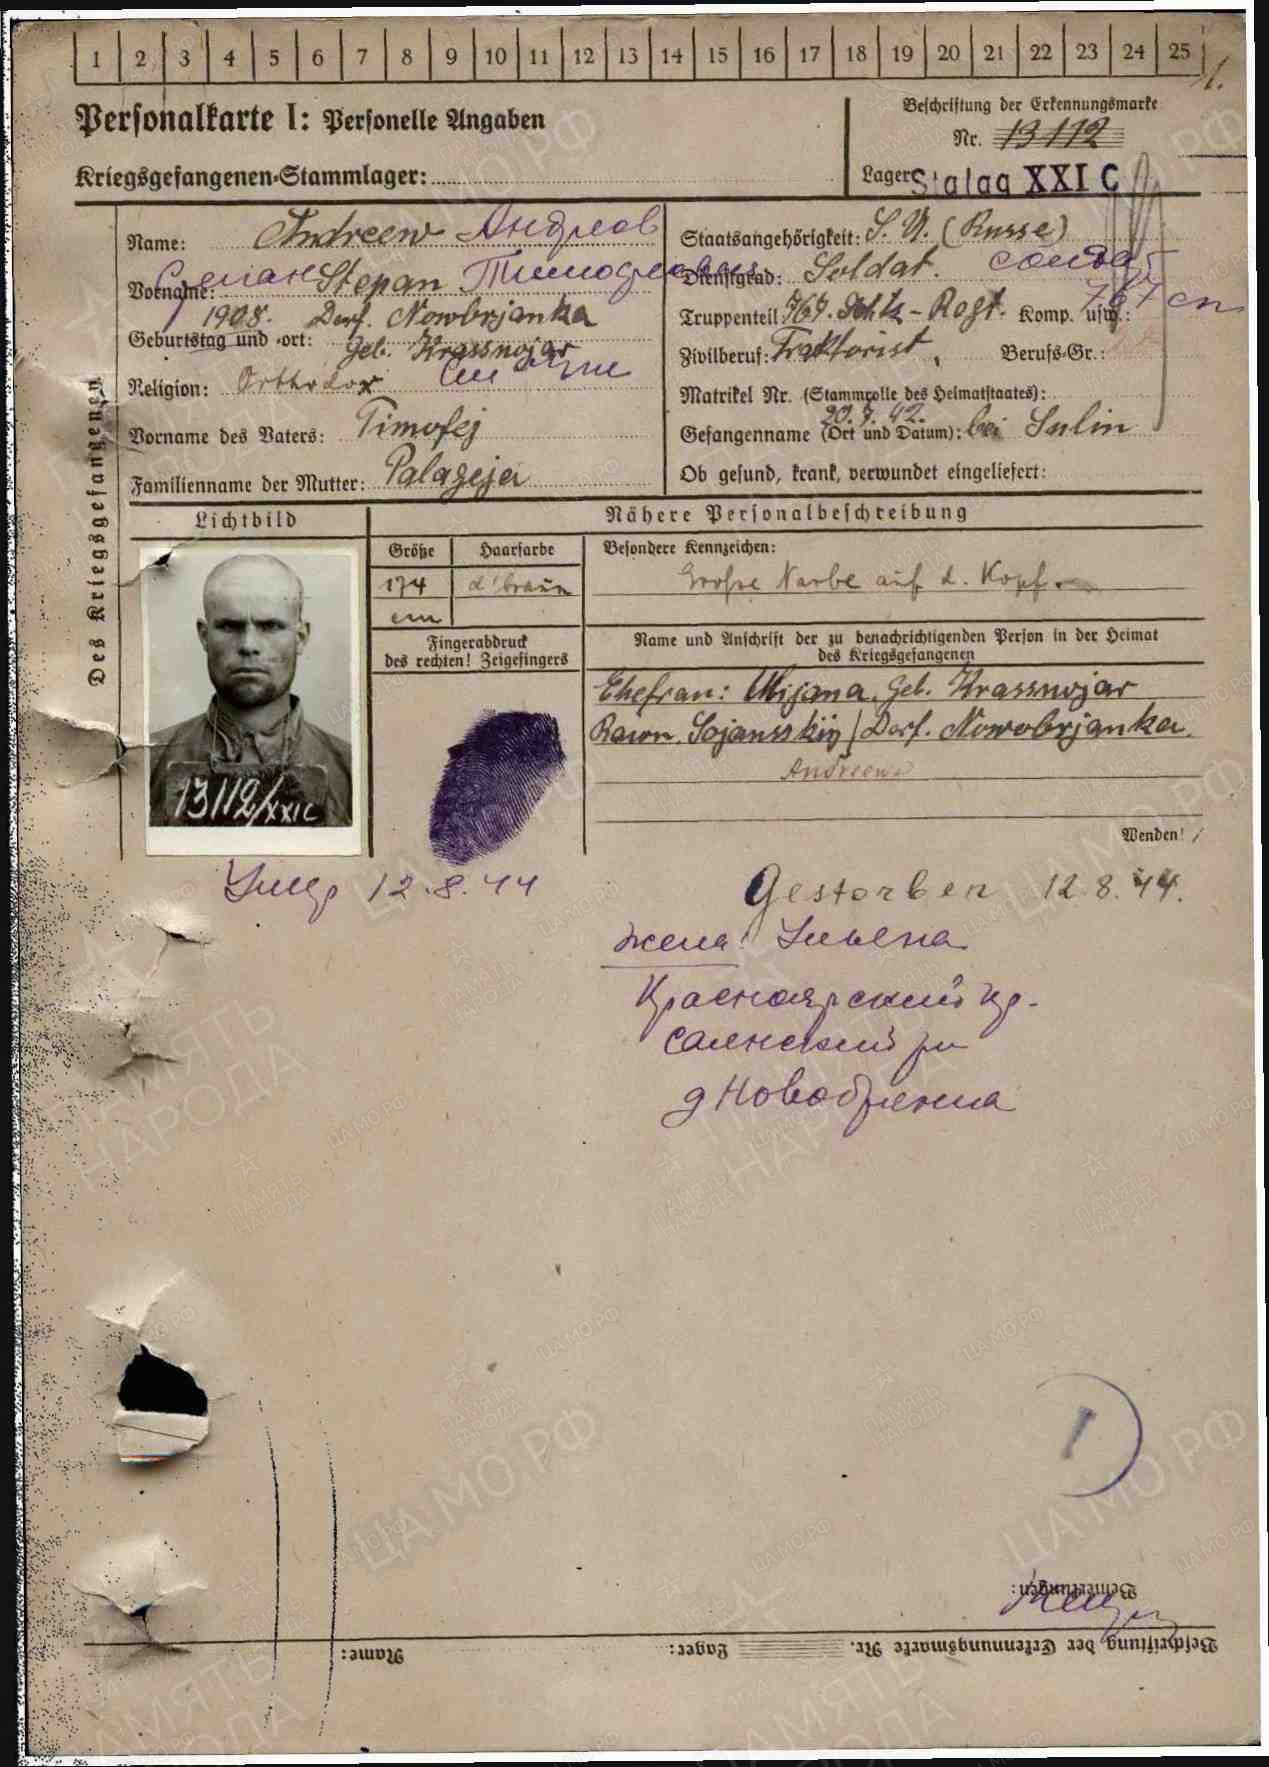 1 2 3 4 5 6 7 8 9 10 11 12 13 14 15 16 17 18 19 20 21 22 23 24 25
Personalkarte I: Personelle Angaben
Beschriftung der Erkennungsmarke
Nr. 13112
Kriegsgefangenen-Stammlager:
Lager: Stalag XXI C
Des Kriegsgefangenen
Name: Andreew Андреев
Vorname: Степан Stepan Тимофеевич
Geburtstag und -ort: 1908. Dorf. Nowobrjanka
Geb. Krassnojar
Religion: Orthodox
Vorname des Vaters: Timofej
Familienname der Mutter: Palageja
Staatsangehörigkeit: S. U. (Russe)
Dienstgrad: Soldat. солдат
Truppenteil: 767. Schtz-Regt. Komp. usw.: 767 сп
Zivilberuf: Traktorist, Berufs-Gr.:
Matrikel Nr. (Stammrolle des Heimatstaates):
20.7.42.
Gefangennahme (Ort und Datum): bei Sulin
Ob gesund, krank, verwundet eingeliefert:
Lichtbild
Nähere Personalbeschreibung
Größe
Haarfarbe
Besondere Kennzeichen:
174
cm
d'braun
Grosse Narbe auf d. Kopf.
Fingerabdruck
des rechten! Zeigefingers
Name und Anschrift der zu benachrichtigenden Person in der Heimat
des Kriegsgefangenen
Ehefrau: Uljana, Geb. Krassnojar
Raion. Sojansskij / Dorf. Nowobrjanka.
Andreewa
13112/XXIC
Wenden!
Умер 12.8.44
Gestorben 12.8.44.
жена: Ульяна
Красноярский кр.
Саянский рн
д Новобрянка
I
Bemerkungen:
Beschriftung der Erkennungsmarke Nr. Lager: Name:
ЦАМО.РФ
ПАМЯТЬ
НАРОДА